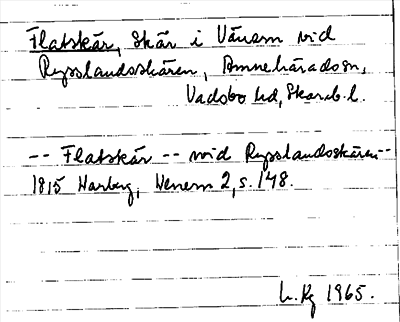 Flatskär, skär i Vänern vid
Rysslandsskären, Amnehärads sn,
Vadsbo hd, Skarab. l.
-- Flatskär -- vid Rysslandsskären --
1815 Warberg, Wenern 2, s. 148.
L. Rg 1965.